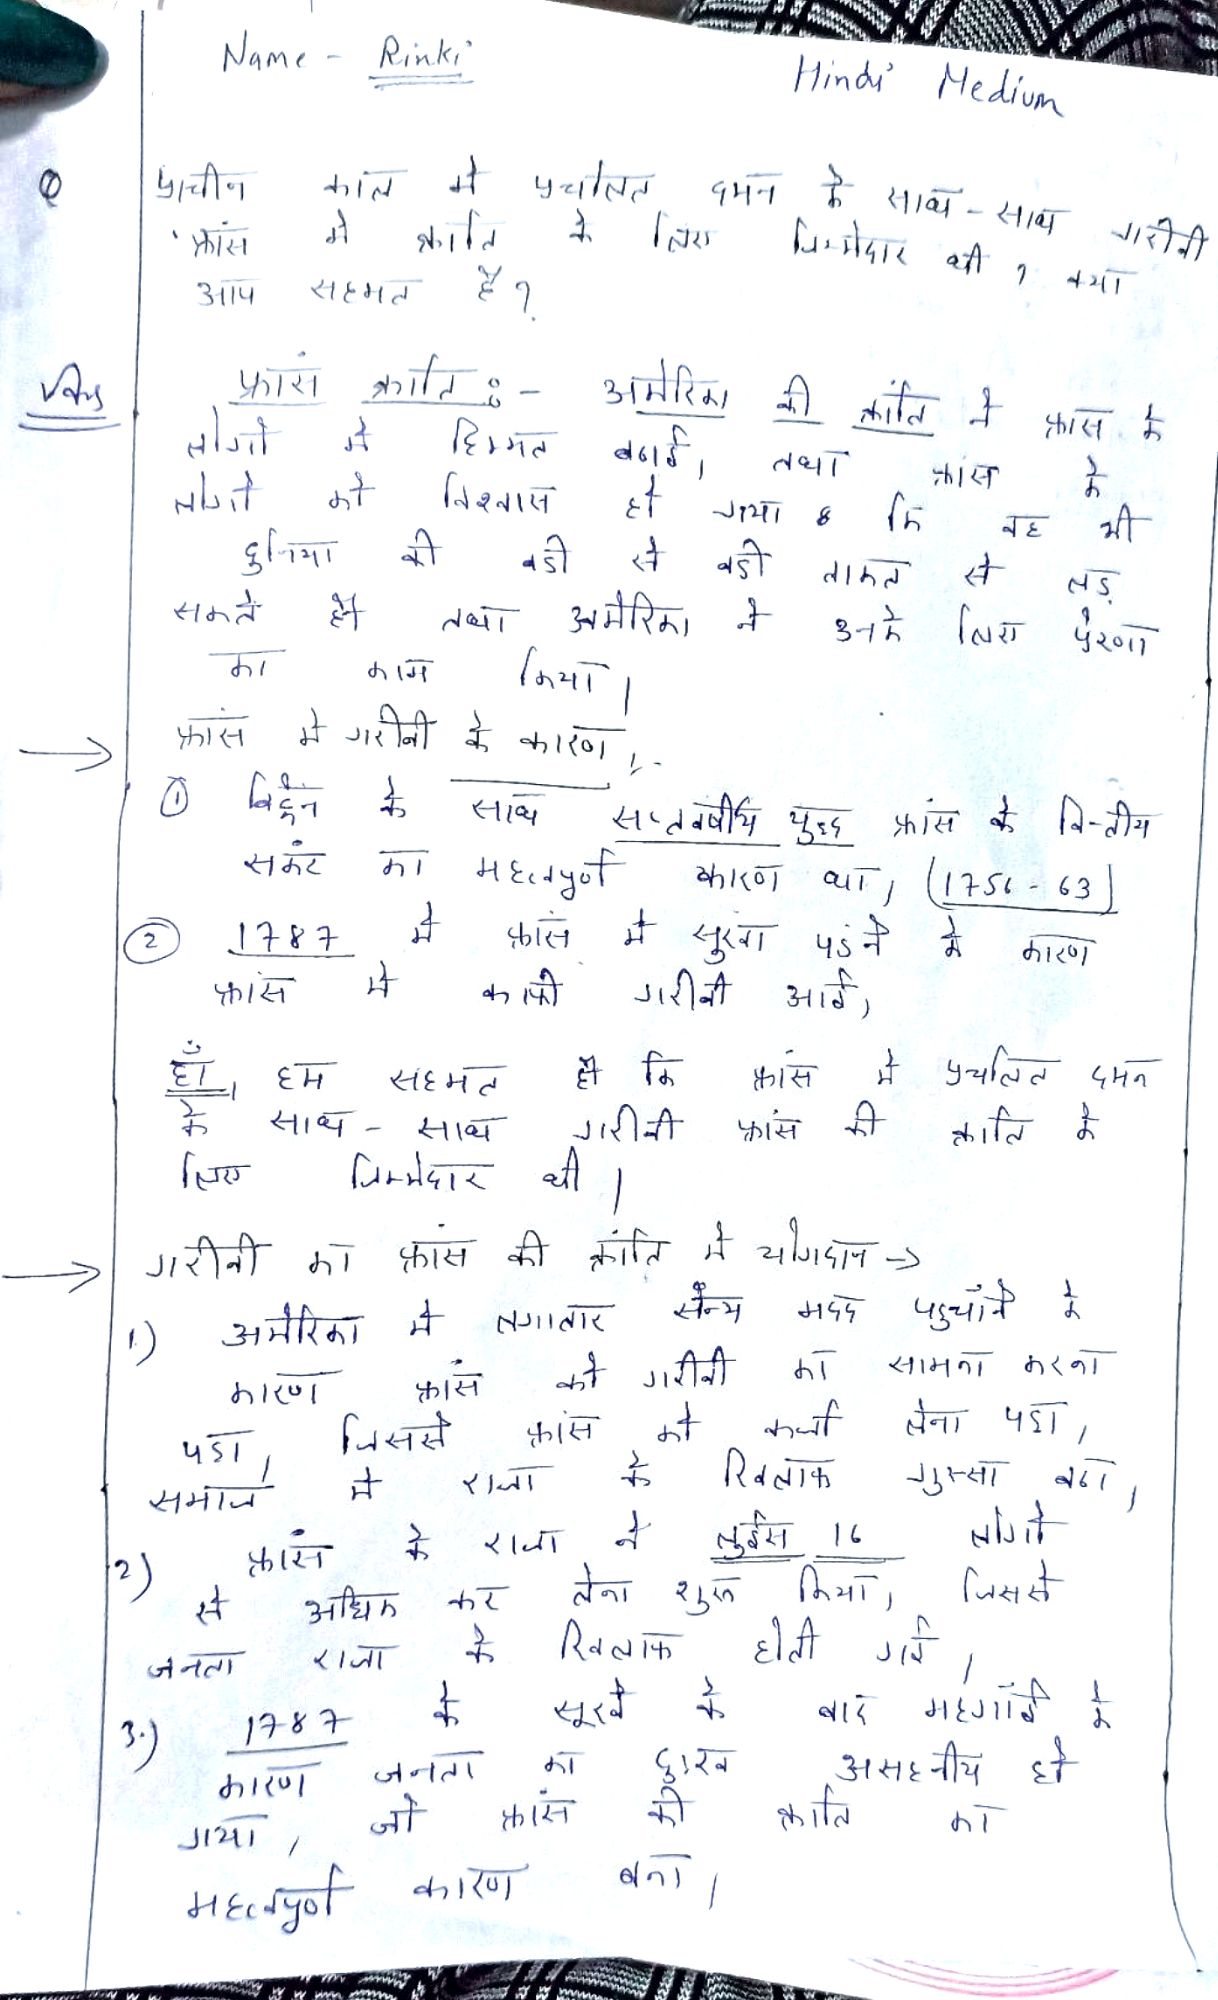 Name - Rinki
Hindi Medium
Q प्राचीन काल में प्रचलित दमन के साथ-साथ गरीबी
फ्रांस में क्रांति के लिए जिम्मेदार थी ? क्या
आप सहमत हैं ?
Ans फ्रांस क्रांति :- अमेरिका की क्रांति ने फ्रांस के
लोगो में हिम्मत बढाई, तथा फ्रांस के
लोगो को विश्वास हो गया कि वह भी
दुनिया की बडी से बडी ताकत से लड़
सकते हैं तथा अमेरिका ने उनके लिए प्रेरणा
का काम किया।
→ फ्रांस में गरीबी के कारण :-
① ब्रिटेन के साथ सप्तवर्षीय युद्ध फ्रांस के वित्तीय
संकट का महत्वपूर्ण कारण था, (1756-63)
② 1787 में फ्रांस में सूखा पडने के कारण
फ्रांस में काफी गरीबी आई,
हाँ, हम सहमत हैं कि फ्रांस में प्रचलित दमन
के साथ-साथ गरीबी फ्रांस की क्रांति के
लिए जिम्मेदार थी।
→ गरीबी का फ्रांस की क्रांति में योगदान →
1.) अमेरिका में लगातार सैन्य मदद पहुचाँने के
कारण फ्रांस को गरीबी का सामना करना
पडा, जिससे फ्रांस को कर्जा लेना पडा,
समाज में राजा के खिलाफ गुस्सा बढा,
2) फ्रांस के राजा ने लुईस 16 लोगो
से अधिक कर लेना शुरू किया, जिससे
जनता राजा के खिलाफ होती गई,
3.) 1787 के सूखे के बाद महगाँई के
कारण जनता का दुःख असहनीय हो
गया, जो फ्रांस की क्रांति का
महत्वपूर्ण कारण बना,